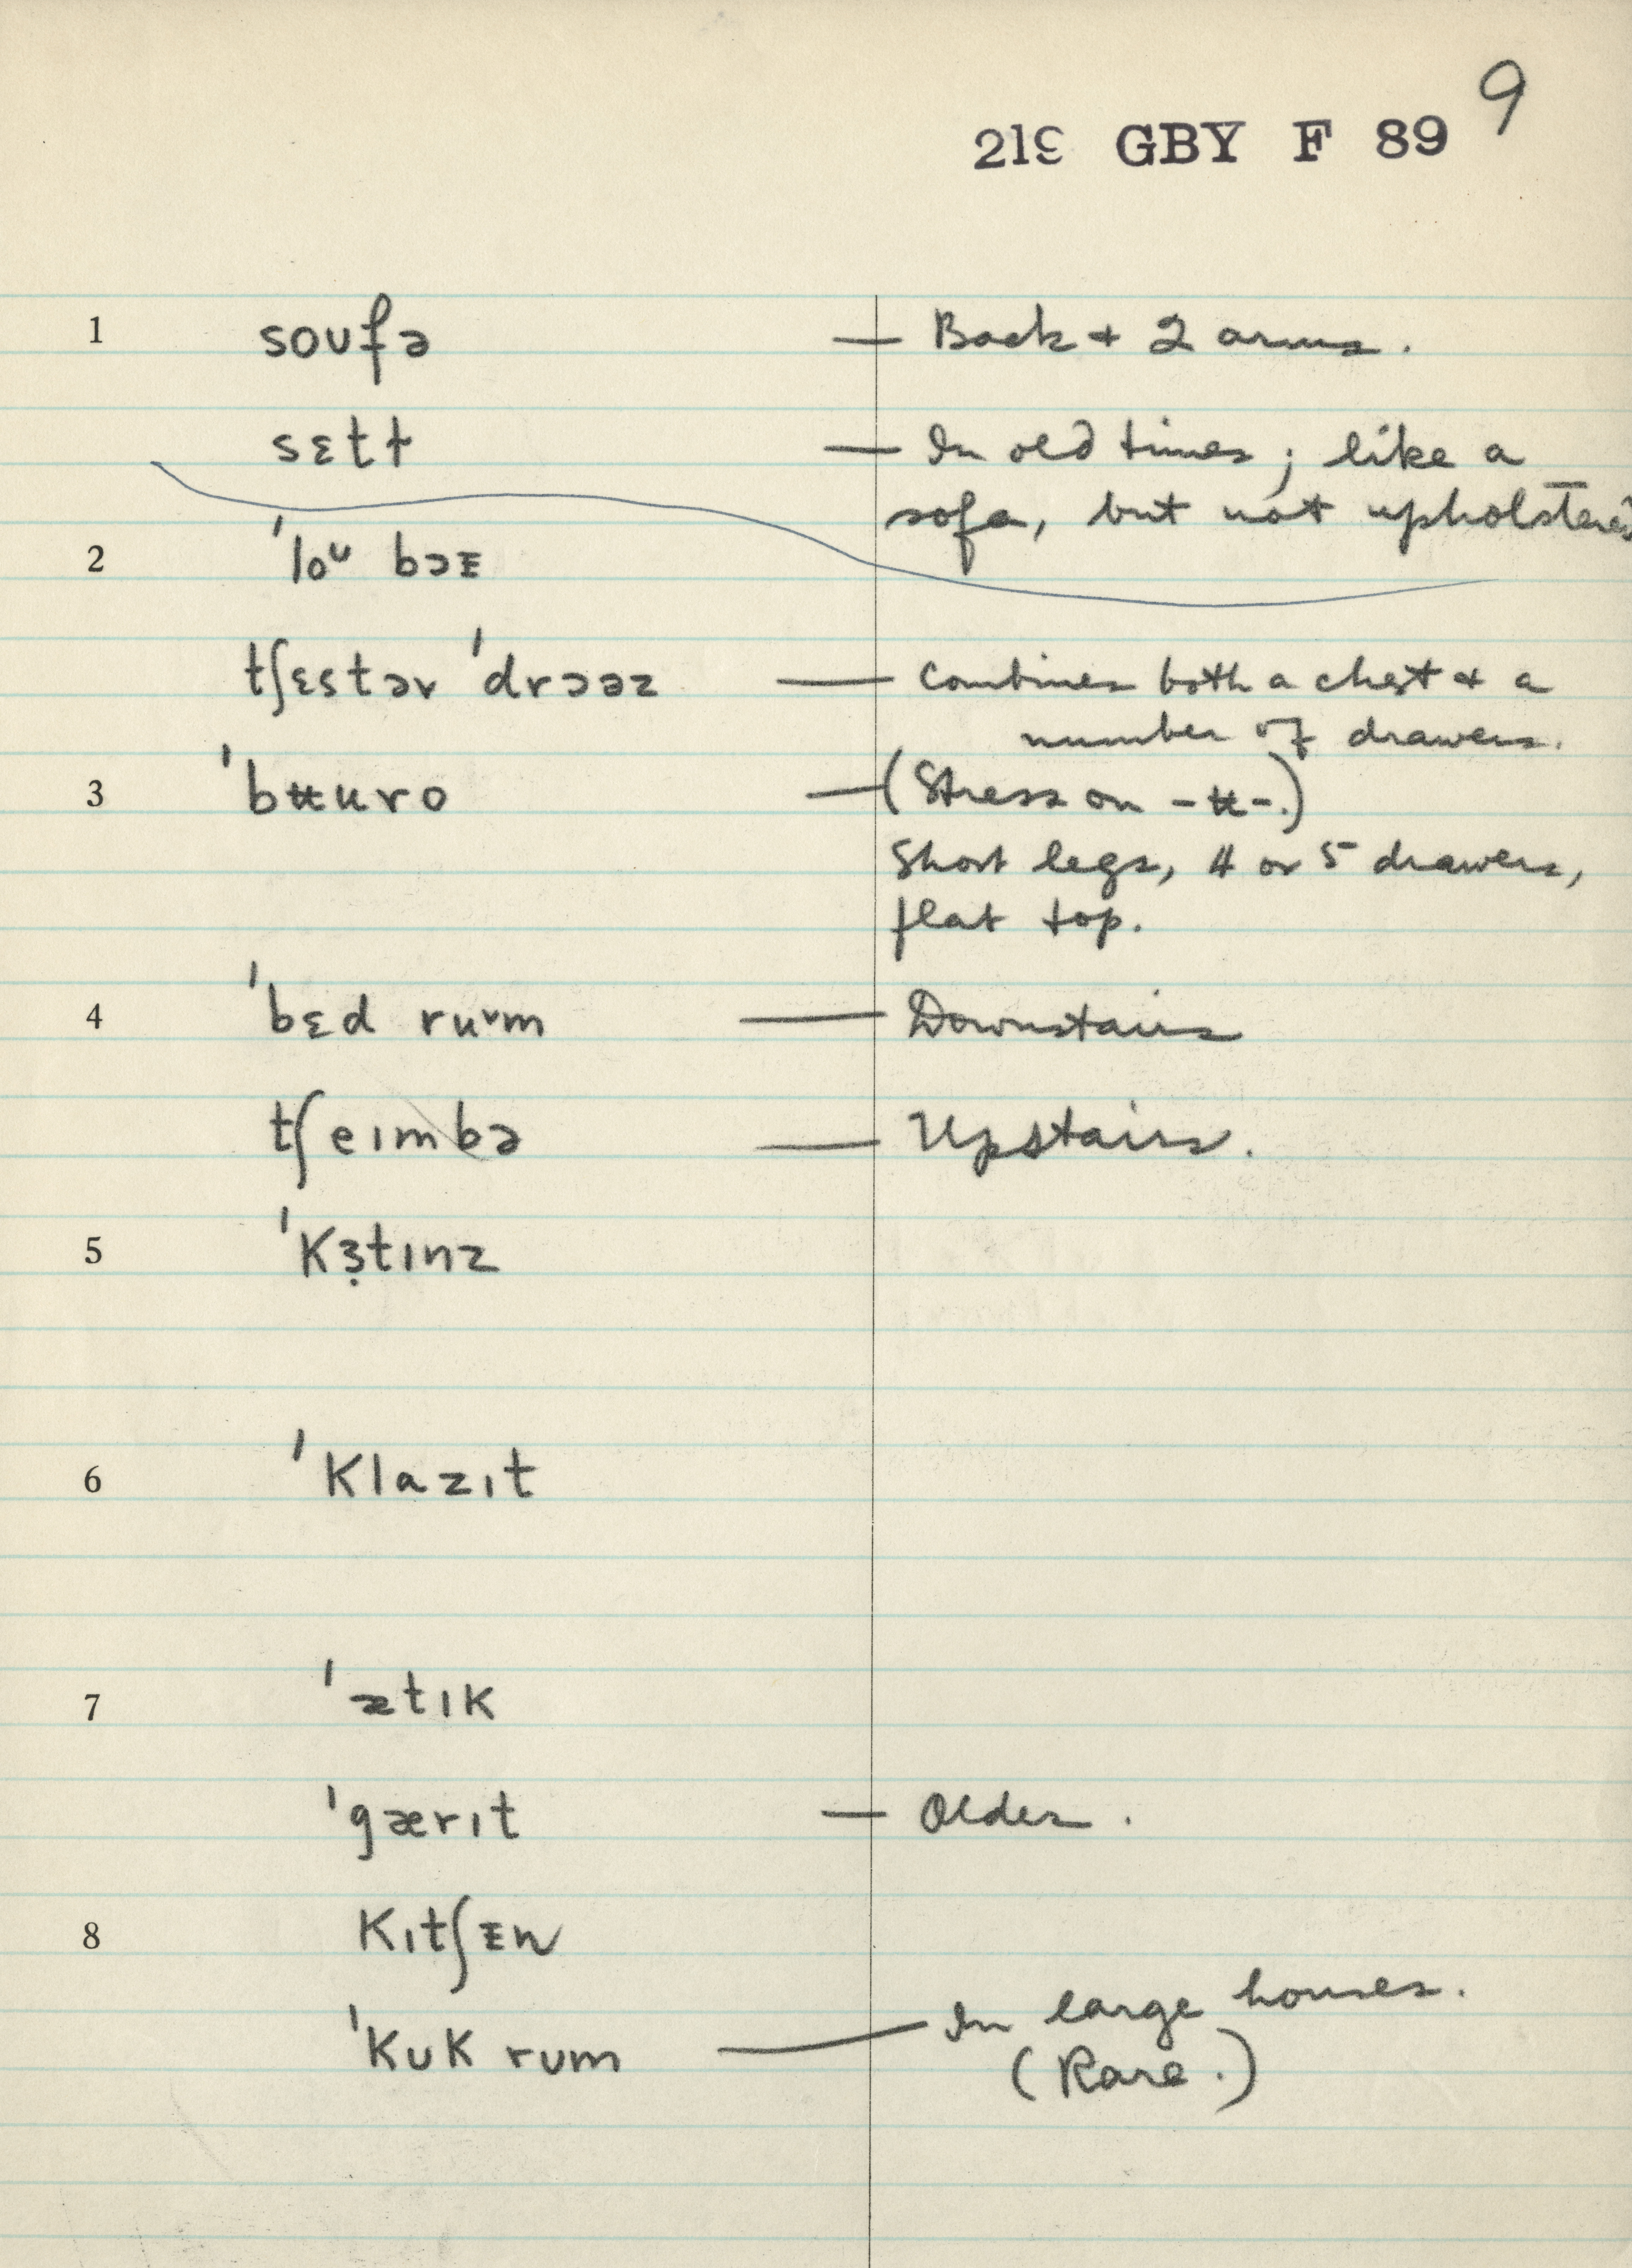 9
219 GBY F 89
1 soufə — Back + 2 arms.
sɛtɫ — In old times; like a
sofa, but not upholstered
2 ˈloᴜ bɔᴇ
tʃɛstəv ˈdrɔəz — Combines both a chest + a
number of drawers.
3 ˈbʉuro — (Stress on -ʉ-.)
Short legs, 4 or 5 drawers,
flat top.
4 ˈbɛd ruᵛm — Downstairs
tʃeɪmbə — Upstairs.
5 ˈkɜ̣tɪnz
6 ˈklazɪt
7 ˈætɪk
ˈgærɪt — Older.
8 kɪtʃᵻn
ˈkʊk rʊm — In large houses.
(Rare.)